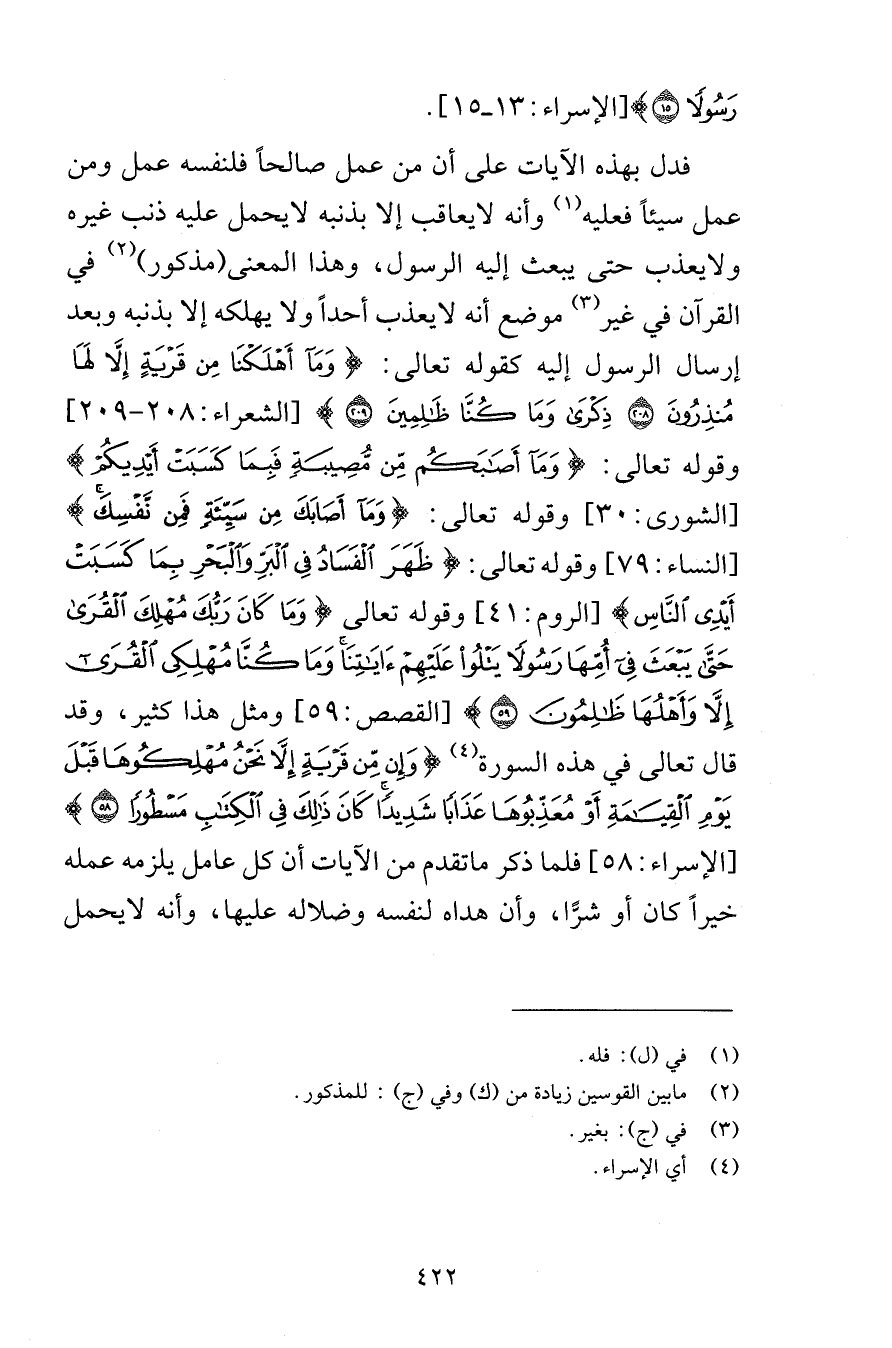 رَسُولًا ۝١٥ ﴾[الإسراء: ١٣-١٥].
فدل بهذه الآيات على أن من عمل صالحاً فلنفسه عمل ومن
عمل سيئاً فعليه(١) وأنه لايعاقب إلا بذنبه لايحمل عليه ذنب غيره
ولايعذب حتى يبعث إليه الرسول، وهذا المعنى(مذكور)(٢) في
القرآن في غير(٣) موضع أنه لايعذب أحداً ولا يهلكه إلا بذنبه وبعد
إرسال الرسول إليه كقوله تعالى: ﴿ وَمَآ أَهۡلَكۡنَا مِن قَرۡيَةٍ إِلَّا لَهَا
مُنذِرُونَ ۝٢٠٨ ذِكۡرَىٰ وَمَا كُنَّا ظَٰلِمِينَ ۝٢٠٩ ﴾ [الشعراء: ٢٠٨-٢٠٩]
وقوله تعالى: ﴿ وَمَآ أَصَٰبَكُم مِّن مُّصِيبَةٖ فَبِمَا كَسَبَتۡ أَيۡدِيكُمۡ ﴾
[الشورى: ٣٠] وقوله تعالى: ﴿ وَمَآ أَصَابَكَ مِن سَيِّئَةٖ فَمِن نَّفۡسِكَۚ ﴾
[النساء: ٧٩] وقوله تعالى: ﴿ ظَهَرَ ٱلۡفَسَادُ فِي ٱلۡبَرِّ وَٱلۡبَحۡرِ بِمَا كَسَبَتۡ
أَيۡدِي ٱلنَّاسِ ﴾ [الروم: ٤١] وقوله تعالى ﴿ وَمَا كَانَ رَبُّكَ مُهۡلِكَ ٱلۡقُرَىٰ
حَتَّىٰ يَبۡعَثَ فِيٓ أُمِّهَا رَسُولٗا يَتۡلُواْ عَلَيۡهِمۡ ءَايَٰتِنَاۚ وَمَا كُنَّا مُهۡلِكِي ٱلۡقُرَىٰٓ
إِلَّا وَأَهۡلُهَا ظَٰلِمُونَ ۝٥٩ ﴾ [القصص: ٥٩] ومثل هذا كثير، وقد
قال تعالى في هذه السورة(٤) ﴿ وَإِن مِّن قَرۡيَةٍ إِلَّا نَحۡنُ مُهۡلِكُوهَا قَبۡلَ
يَوۡمِ ٱلۡقِيَٰمَةِ أَوۡ مُعَذِّبُوهَا عَذَابٗا شَدِيدٗاۚ كَانَ ذَٰلِكَ فِي ٱلۡكِتَٰبِ مَسۡطُورٗا ۝٥٨ ﴾
[الإسراء: ٥٨] فلما ذكر ماتقدم من الآيات أن كل عامل يلزمه عمله
خيراً كان أو شرًّا، وأن هداه لنفسه وضلاله عليها، وأنه لايحمل
(١) في (ل): فله.
(٢) مابين القوسين زيادة من (ك) وفي (ج) : للمذكور.
(٣) في (ج): بغير.
(٤) أي الإسراء.
٤٢٢